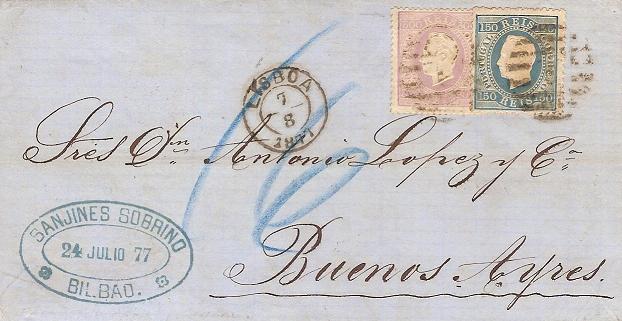 PORTUGAL 150 REIS CORREIO
150 REIS 150
LISBOA
7
8
1877
16
Sres Dn Antonio Lopez y Ca
Buenos Ayres.
SANJINES SOBRINO
24 JULIO 77
BILBAO.